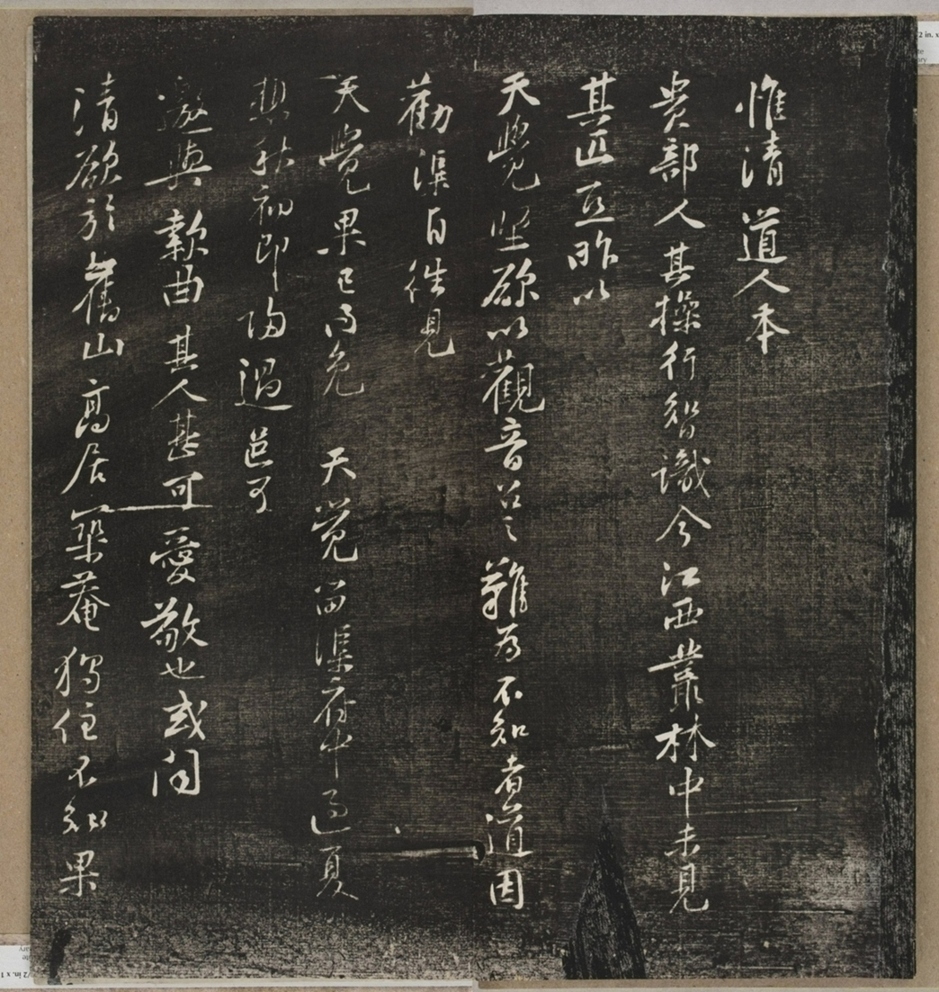 惟清道人本
貴部人其操行智識今江西叢林中未見
其匹亞昨以
天覺堅欲以觀音召之難為不知者道因
勸渠自往見
天覺果已得免 天覺留渠府中過夏
想秋初即歸過邑可
邀與款曲其人甚可愛敬也或聞
清欲於舊山高居築菴獨住不知果